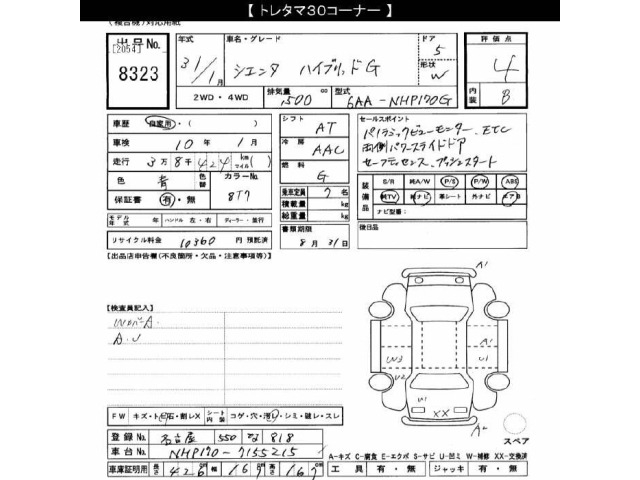 【 トレタマ30コーナー 】
(複合機)対応用紙
出品No.
[2054]
8323
年式
31/1月
車名・グレード
シエンタ ハイブリッドG
ドア
5
形状
W
評価点
4
内装
B
2WD・4WD
排気量
1500 cc
型式
6AA-NHP170G
車歴
自家用・( )
車検
10年 1月
走行
3万8千424 km マイル( )
色
青
色替
カラーNo.
8T7
保証書
有・無
モデル年式
年
ハンドル 左・右
ディーラー・並行
リサイクル料金
10360 円 預託済
シフト
AT
冷房
AAC
燃料
G
乗車定員
7 名
積載量
kg
総重量
kg
書類期限
8月31日
セールスポイント
パノラミックビューモニター、ETC
両側パワースライドドア
セーフティセンス、プッシュスタート
装備品
S/R
純A/W
P/S
P/W
ABS
純TV
純ナビ
革シート
外ナビ
エアB
ナビ型番:
後日品
【出品店申告欄(不良箇所・欠品・注意事項等)】
【検査員記入】
WカバーA.
A.U
FW
キズ・ト石・割レX
シート内装
コゲ・穴・汚レ・シミ・破レ・スレ
登録No.
名古屋 550 な 818
車台No.
NHP170-7155215
車庫証明用
長さ 426
幅 169
高さ 167
A1
W3
A1
U1
U1
XX
A2
スペア
A-キズ C-腐食 E-エクボ S-サビ U-凹ミ W-補修 XX-交換済
工具
有・無
ジャッキ
有・無